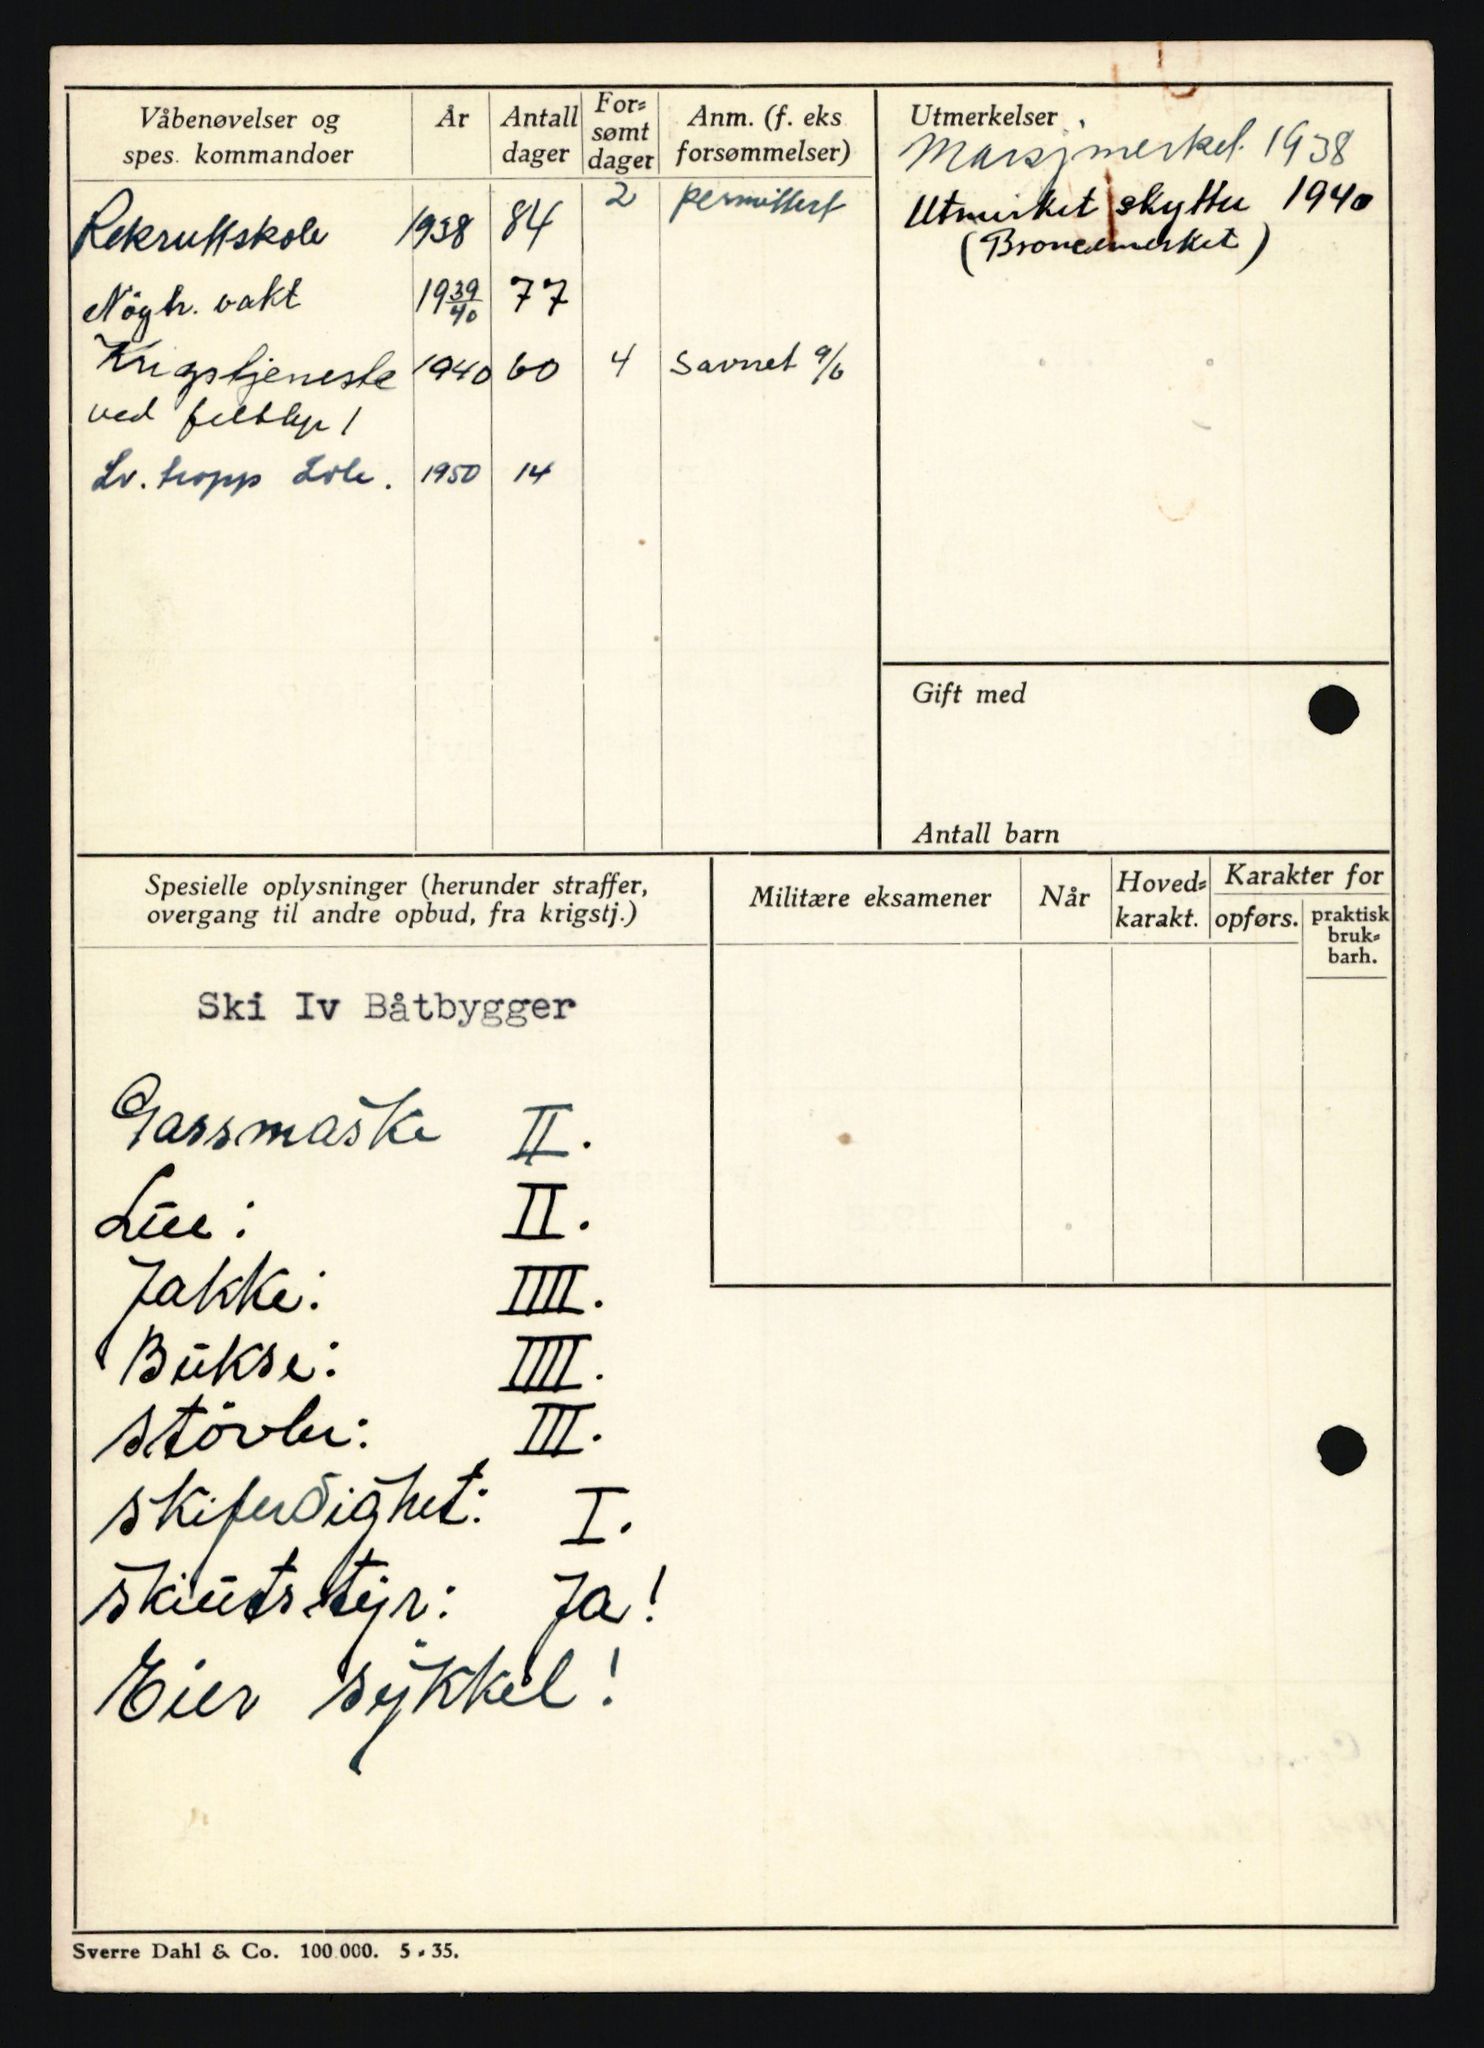 Våbenøvelser og
spes. kommandoer
År
Antall
dager
For=
sømt
dager
Anm. (f. eks
forsømmelser)
Rekruttskole 1938 84 2 permittert
Nøytr. vakt 19 39/40 77
Krigstjeneste 1940 60 4 Savnet 9/6
ved feltbyr 1
Lv. tropp 1950 14
Utmerkelser
Marsjmerket 1938
Utmerket skytter 1940
(Broncemerket)
Gift med
Antall barn
Spesielle oplysninger (herunder straffer,
overgang til andre opbud, fra krigstj.)
Ski Iv Båtbygger
Gassmaske II.
Lue: II.
Jakke: IIII.
Bukse: IIII.
Støvler: III.
Skiferdighet: I.
Skiutstyr: Ja!
Eier sykkel!
Militære eksamener
Når
Hoved=
karakt.
Karakter for
opførs.
praktisk
bruk=
barh.
Sverre Dahl & Co. 100.000. 5 - 35.